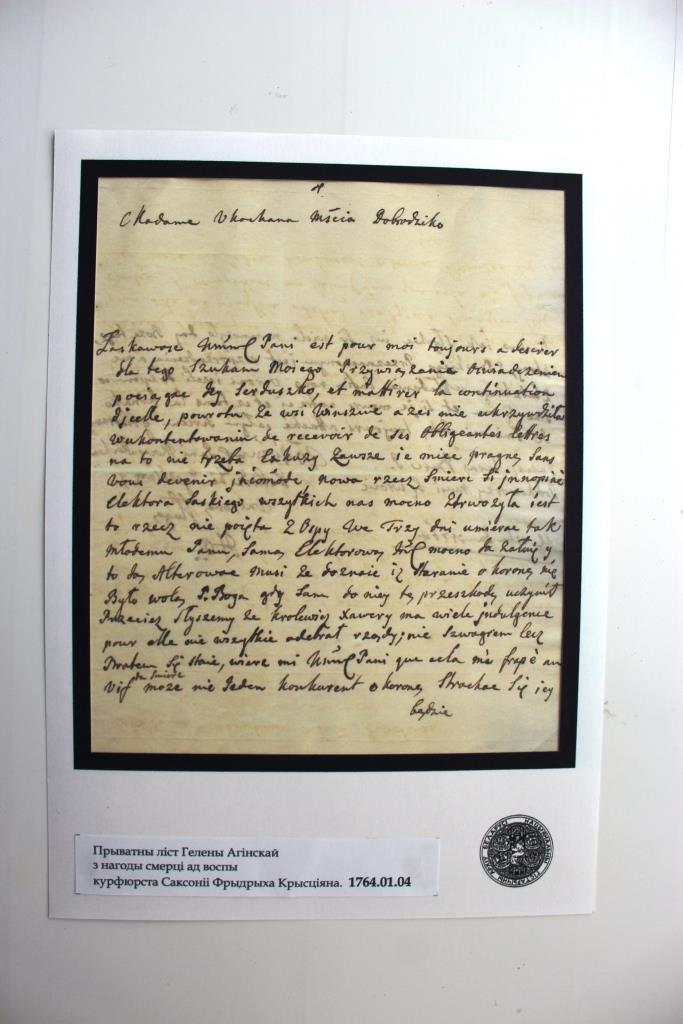 Madame Ukochana Mścia Dobrodziko
Łaskawosc Pani est pour moi toujours a desirer
dla tego Szukam Moiego Przywiązania Oswiadczeniem
pociągac Jey Serduszko, et mattirer la continuation
d'jcelle, powrotu ze wsi Winszuie a zes mie ukrzywdziła
wukontentowaniu de recevoir de ses Obligeantes lettres
na to nie trzeba Zawsze ie miec pragnę, Sans
Vous devenir jncomode, nowa rzecz Smierc
Elektora Saskiego wszytkich nas mocno Ztrwozyła iest
to rzecz nie poięta Z Ospy We Trzy dni umierac tak
młodemu Panu, Samą Elektorową mocno
to Alterowac Musi ze doznaie iz Staranie o koronę nie
Było wolą P. Boga gdy Sam do niey tę przeszkodę uczynił
Przeciez Słyszemy ze krolewic Xawery ma wiele jndulgence
pour elle nie wszytkie odebrał rządy; nie Szwagrem lecz
Bratem Się Staie, wierz mi Pani que cela m'a frapè au
Vif moze nie Jeden konkurent o koronę Strachac Się iey
będzie
Прыватны ліст Гелены Агінскай
з нагоды смерці ад воспы
курфюрста Саксоніі Фрыдрыха Крысціяна. 1764.01.04